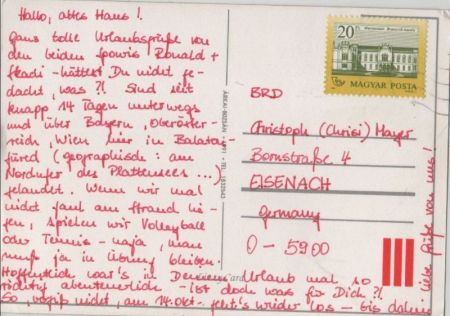 Hallo, altes Haus!
ganz tolle Urlaubsgrüße von
den beiden Sowis Ronald +
Skadi - hättest Du nicht ge-
dacht, was?! Sind seit
knapp 14 Tagen unterwegs
und über Bayern, Oberöster-
reich, Wien hier in Balaton-
füred (geographisch: am
Nordufer des Plattensees...)
gelandet. Wenn wir mal
nicht faul am Strand lie-
gen, spielen wir Volleyball
oder Tennis - naja, man
muß ja in Übung bleiben.
Hoffentlich war's in Deinem Urlaub mal so
richtig abenteuerlich - ist doch was für Dich?!
So, vergiß nicht, am 14. Okt. geht's wieder los - bis dahin
liebe Grüße von uns!
20 Ft
MAGYAR POSTA
BRD
Christoph (Chrisi) Mayer
Bornstraße 4
EISENACH
Germany
O-5900
Card